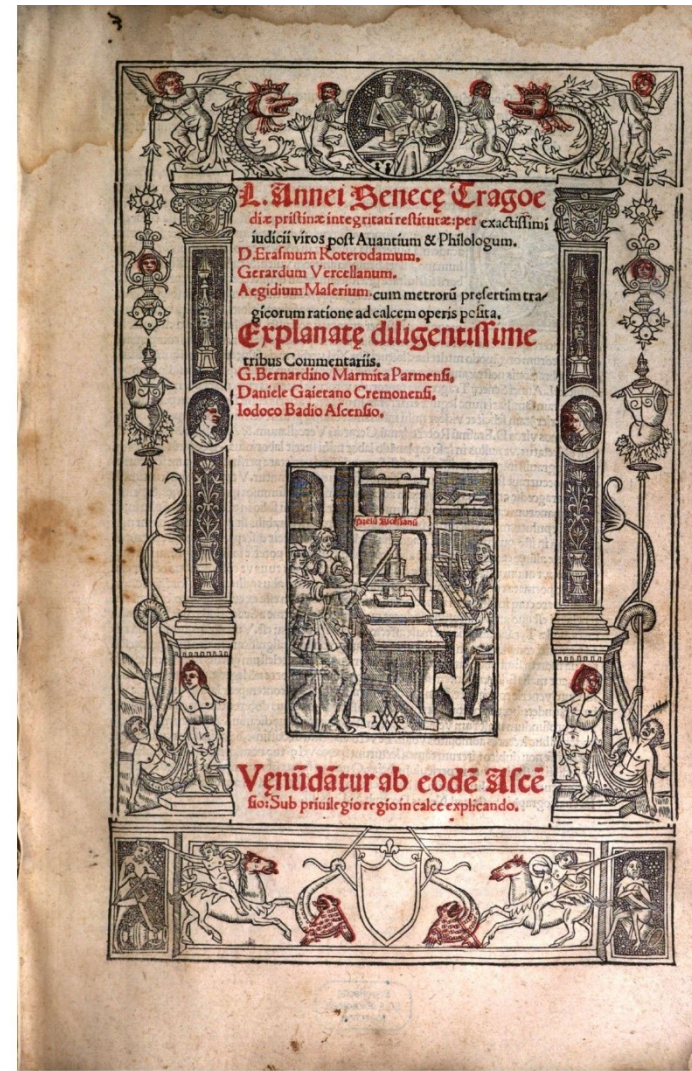 L. Annei Senecę Tragoe
diæ pristinæ integritati restitutæ: per exactissimi
iudicii viros post Auantium & Philologum.
D. Erasmum Roterodamum.
Gerardum Vercellanum.
Aegidium Maserium. cum metrorū presertim tra-
gicorum ratione ad calcem operis posita.
Explanatę diligentissime
tribus Commentariis.
G. Bernardino Marmita Parmensi.
Daniele Gaietano Cremonensi.
Iodoco Badio Ascensio.
Prelū Ascēsianū
I B
Vęnūdātur ab eodē Ascē
sio: Sub priuilegio regio in calce explicando.